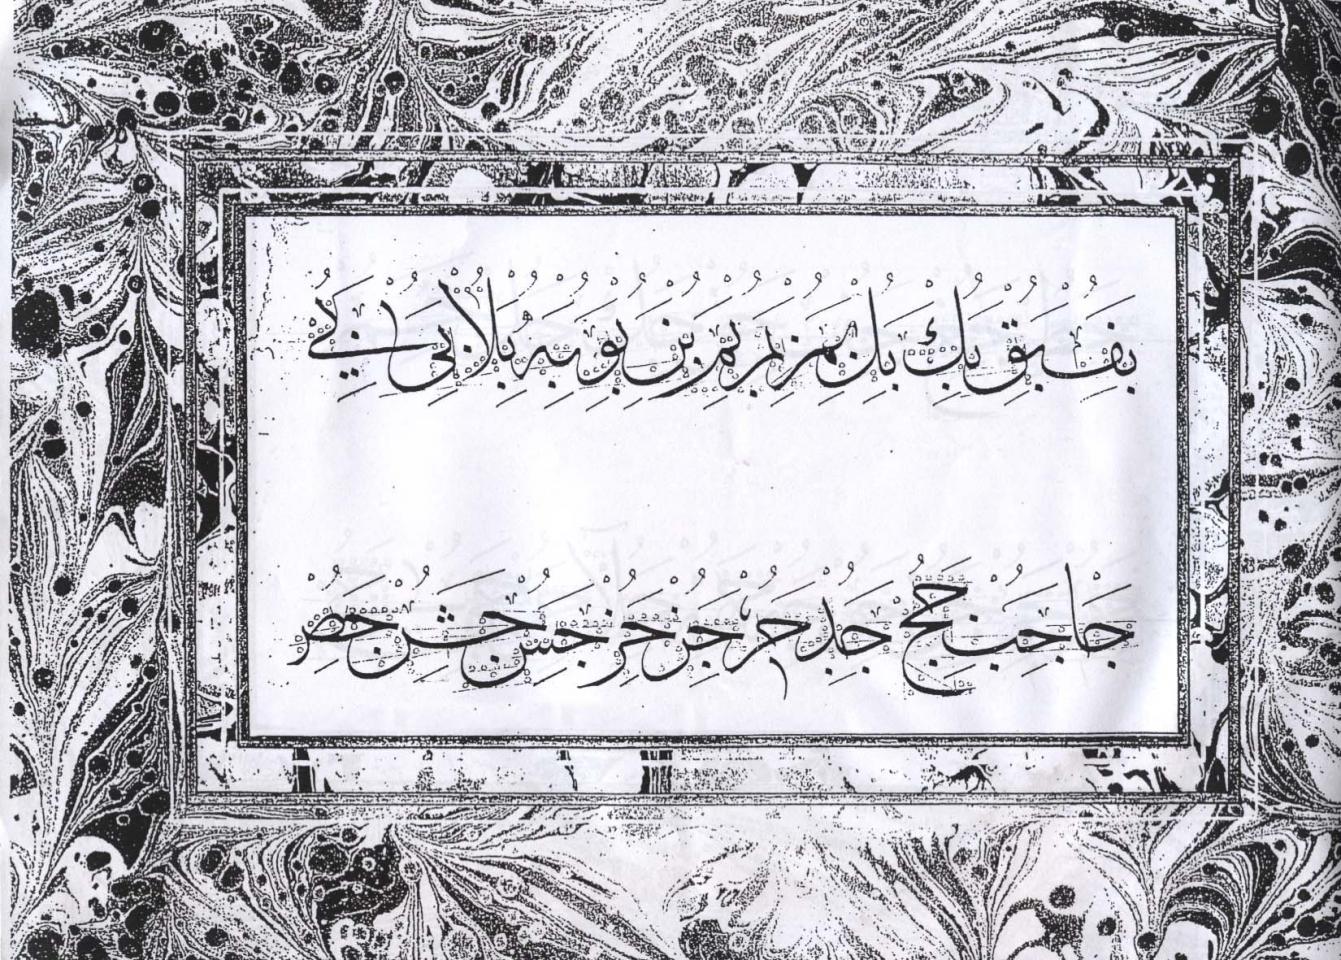 بف بق بك بل بم بم بن بن بو به بلا بى بے
جا جب جج جد جر جز جز جس جش جص